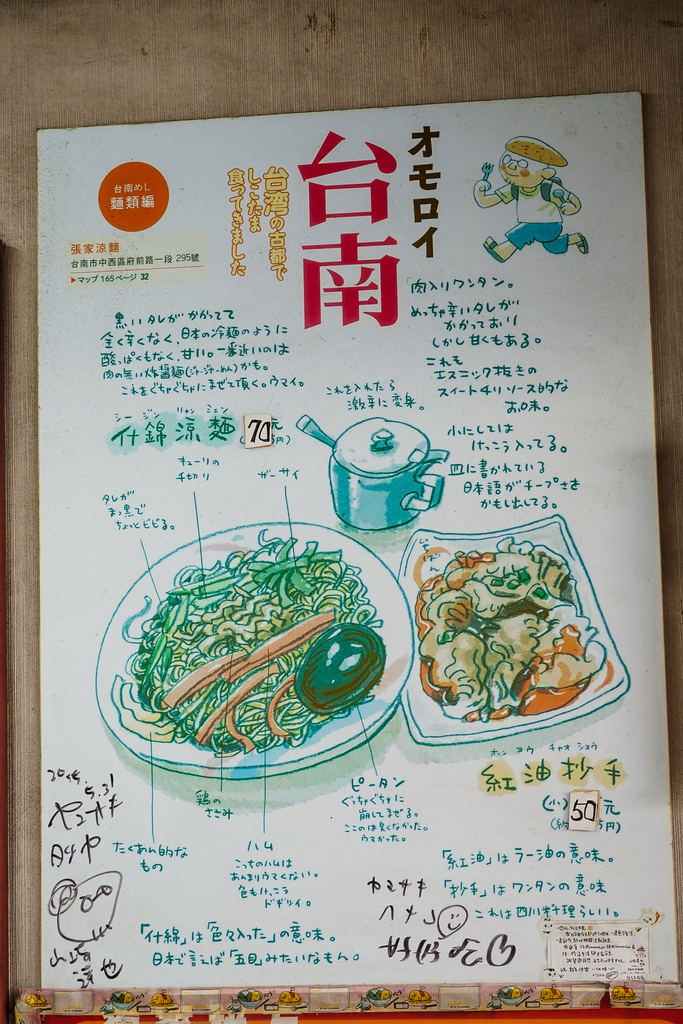 オモロイ
台南
台湾の古都で
しこたま
食ってきました
台南めし
麵類編
張家涼麵
台南市中西區府前路一段 295號
▶マップ 165ページ 32
黒いタレがかかってて
全く辛くなく、日本の冷麺のように
酸っぱくもなく、甘い。一番近いのは
肉の無い炸醤麺(ジャージャーめん)かも。
これをぐちゃぐちゃにまぜて頂く。ウマイ。
肉入りワンタン。
めっちゃ辛いタレが
かかっており
しかし甘くもある。
これも
エスニック抜きの
スイートチリソース的な
お味。
小にしては
けっこう入ってる。
皿に書かれている
日本語がチープさを
かもし出してる。
これを入れたら
激辛に変身。
シー ジン リャン ミェン
什錦涼麵 70元
キューリの
千切り
ザーサイ
タレが
まっ黒で
ちょっとビビる。
鶏の
ささみ
たくあん的な
もの
ハム
こっちのハムは
あんまりウマくない。
色もけっこう
ドギツイ。
ピータン
ぐっちゃぐちゃに
崩してまぜる。
ここのは臭くなかった。
ウマかった。
ホン ヨウ チャオ ショウ
紅油抄手
(小) 50元
「紅油」はラー油の意味。
「抄手」はワンタンの意味
これは四川料理らしい。
「什錦」は「色々入った」の意味。
日本で言えば「五目」みたいなもん。
ヤマサキ
好好吃